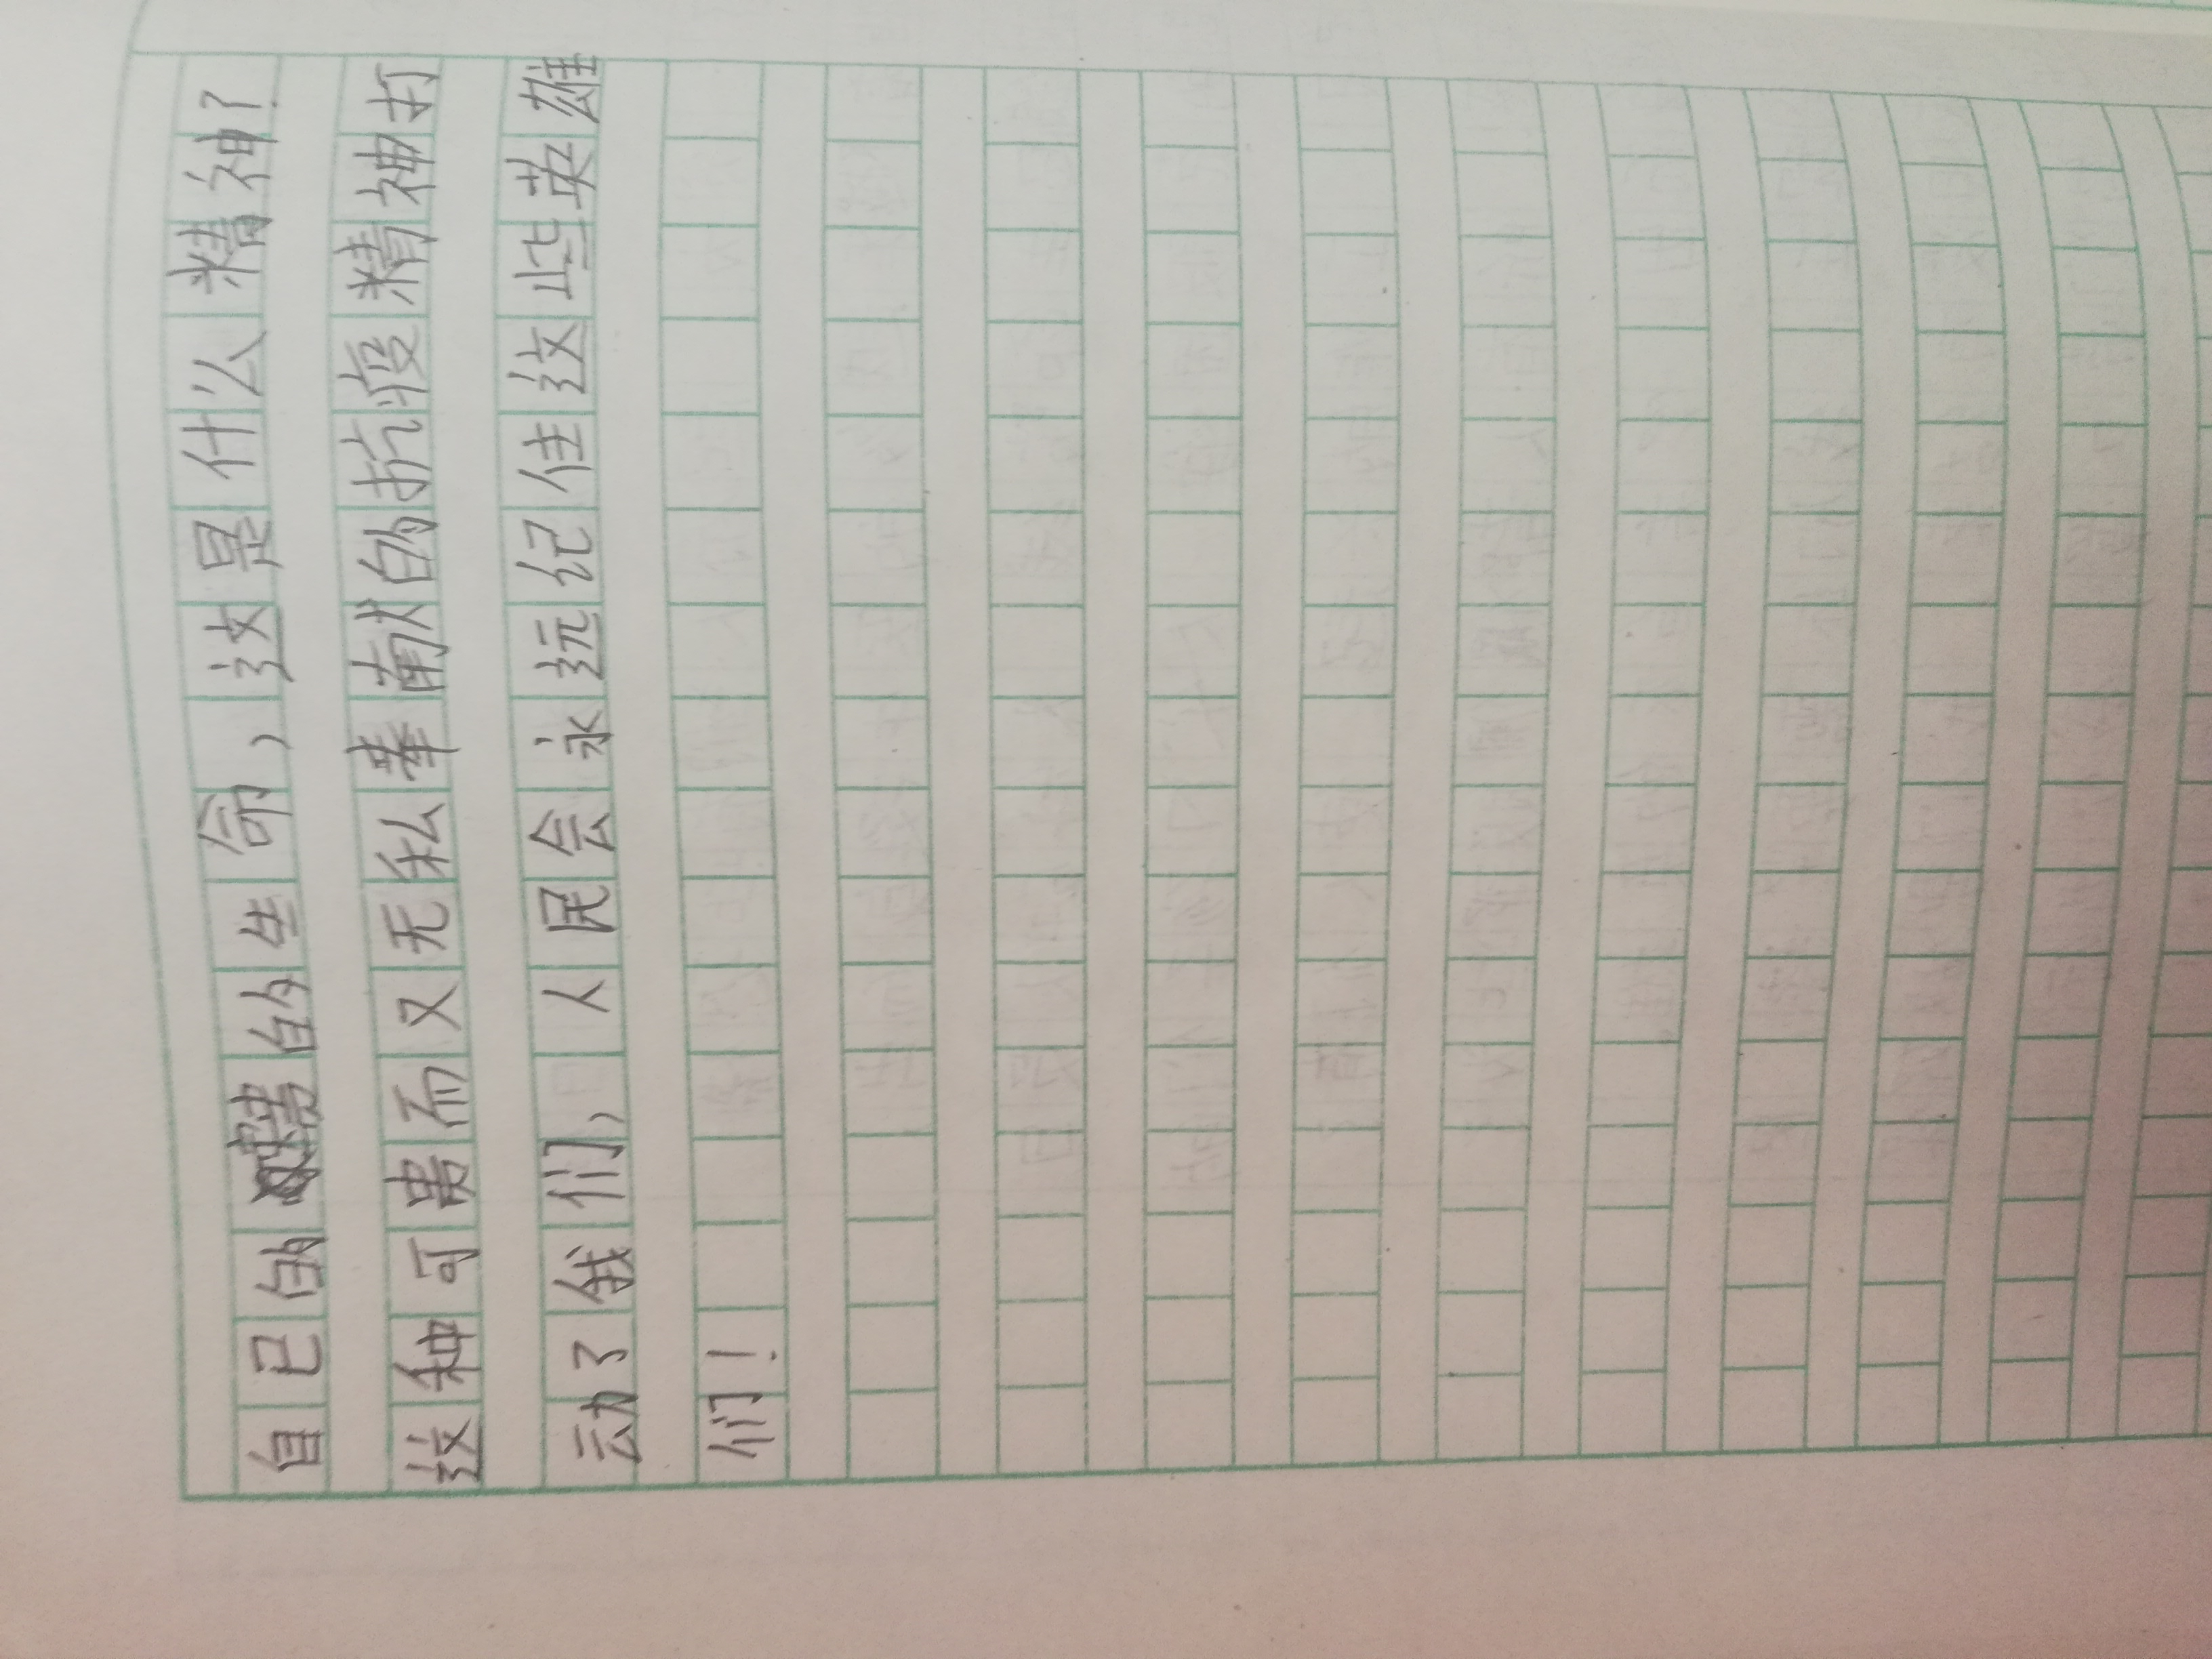 自已的宝贵的生命，这是什么精神？
这种可贵而又无私奉献的抗疫精神打
动了我们，人民会永远记住这些英雄
们！